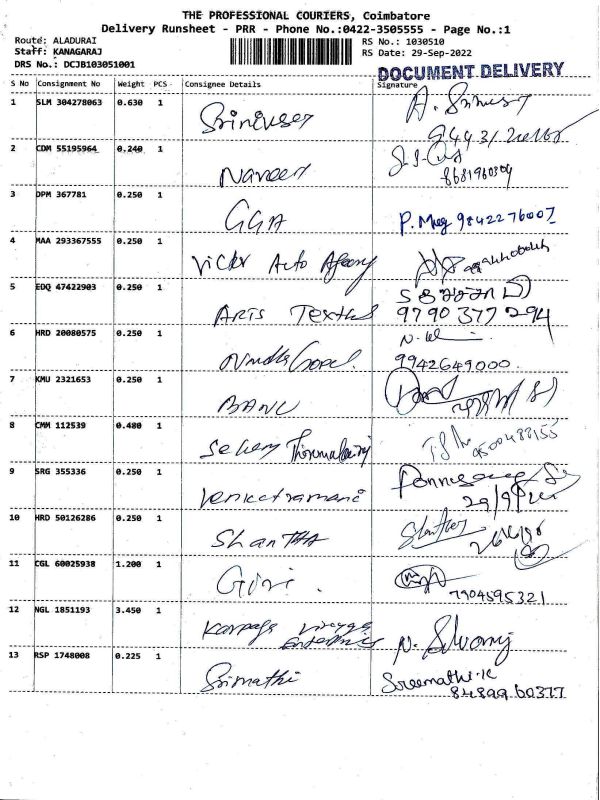 THE PROFESSIONAL COURIERS, Coimbatore
Delivery Runsheet - PRR - Phone No.:0422-3505555 - Page No.:1
Route: ALADURAI
Staff: KANAGARAJ
DRS No.: DCJB103051001
RS No.: 1030510
RS Date: 29-Sep-2022
DOCUMENT DELIVERY
S No Consignment No Weight PCS Consignee Details Signature
1 SLM 304278063 0.630 1 A.
2 CDM 55195964 0.240 1 Naveen
8681960304
3 DPM 367781 0.250 1 GGA P. Mug 9842276007
4 MAA 293367555 0.250 1 Vicky Auto Agency
5 EDQ 47422903 0.250 1 ARTS Textiles
9790377294
6 HRD 20080575 0.250 1
9942649000
7 KMU 2321653 0.250 1 BANU
8 CMM 112539 0.480 1 Sekar
9500488155
9 SRG 355336 0.250 1 Venketramani
29/9/22
10 HRD 50126286 0.250 1 ShanTHA
11 CGL 60025938 1.200 1 Gowri.
7904595321
12 NGL 1851193 3.450 1 Karpaga Vinayaga
Enterprises N. Selvaraj
13 RSP 1748008 0.225 1 Srimathi Sreemathi.K
8489960377